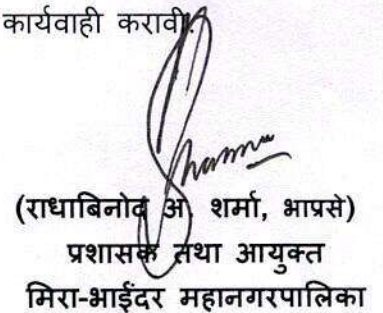 कार्यवाही करावी.
(राधाबिनोद अ शर्मा, भाप्रसे)
प्रशासक तथा आयुक्त
मिरा-भाईंदर महानगरपालिका